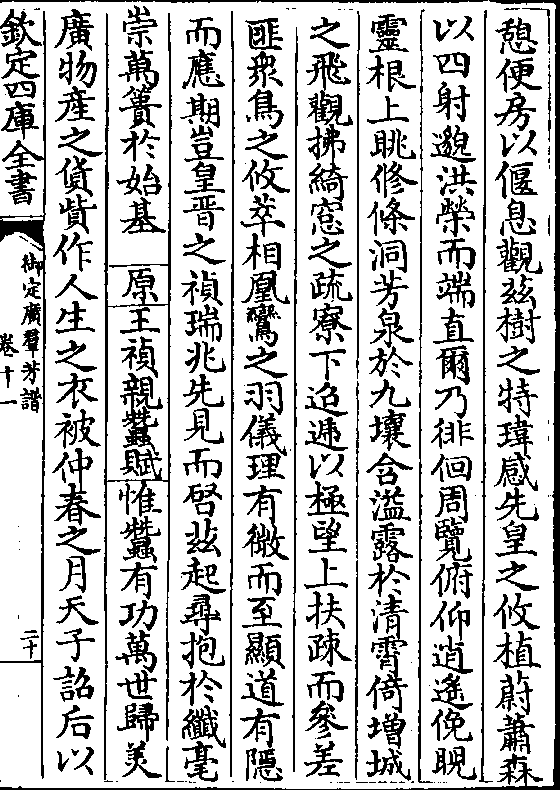 憩便房以偃息觀兹樹之特瑋感先皇之攸植蔚蕭森
以四射邈洪榮而端直爾乃徘佪周覽俯仰逍遙俛睨
靈根上眺修條洞芳泉於九壤含溢露於清霄倚增城
之飛觀拂綺窓之疏寮下迢遞以極望上扶疎而參差
匪衆鳥之攸萃相凰鸞之羽儀理有微而至顯道有隱
而應期豈皇晉之禎瑞兆先見而啓兹起尋抱於纖毫
崇萬簣於始基 原 王禎親蠶賦 惟蠶有功萬世歸美
廣物產之貨貲作人生之衣被仲春之月天子詔后以
欽定四庫全書
御定廣羣芳譜
卷十一
二十